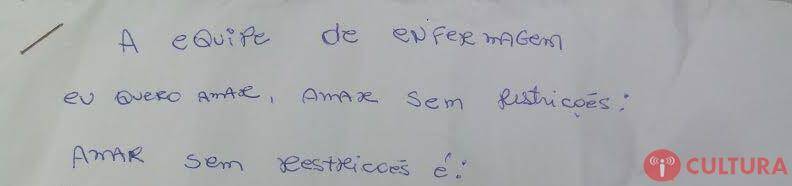 A EQUIPE de ENFERMAGEM
EU QUERO AMAR, AMAR Sem Restricções:
AMAR Sem Restricções é:
CULTURA